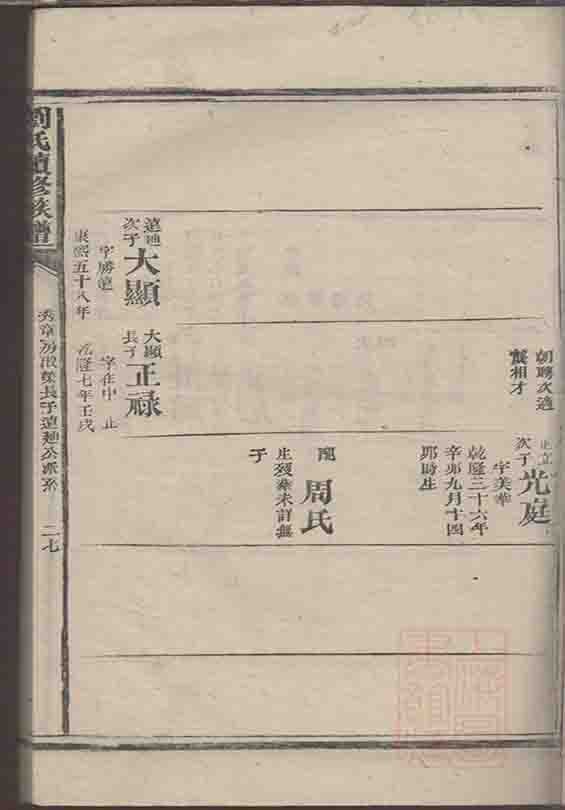 朝聘次適
龔相才
正立
次子
光庭
字美華
乾隆三十六年
辛卯九月十四
卯時生
配
周氏
生歿葬未詳無
子
遠廸
次子
大顯
字勝遠
康熙五十八年
大顯
長子
正禄
字在中 止
乾隆七年壬戌
劉氏續修族譜
長子遠廸公派系
二七